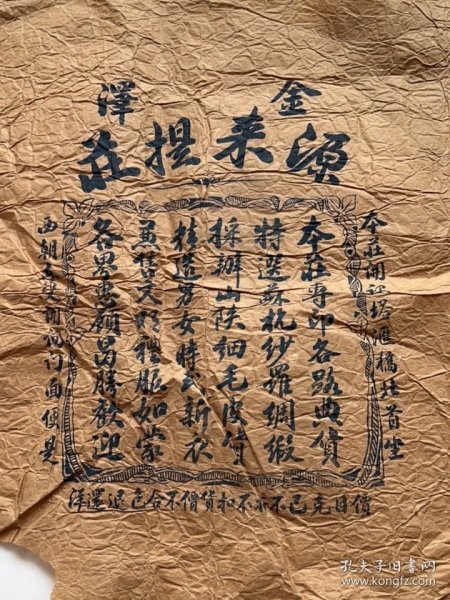 金澤
源来提莊
本莊開設塔滙橋北首坐
本莊專印各路典貨
特選蘇杭紗羅綢緞
採辦山陝細毛皮貨
精造男女時式新衣
兼售天禮服如蒙
各界惠顧曷勝歡迎
西朝東雙開間門面便是
價目克己不折不扣貨價不合包退還洋
孔夫子旧书网
www.kongfz.com